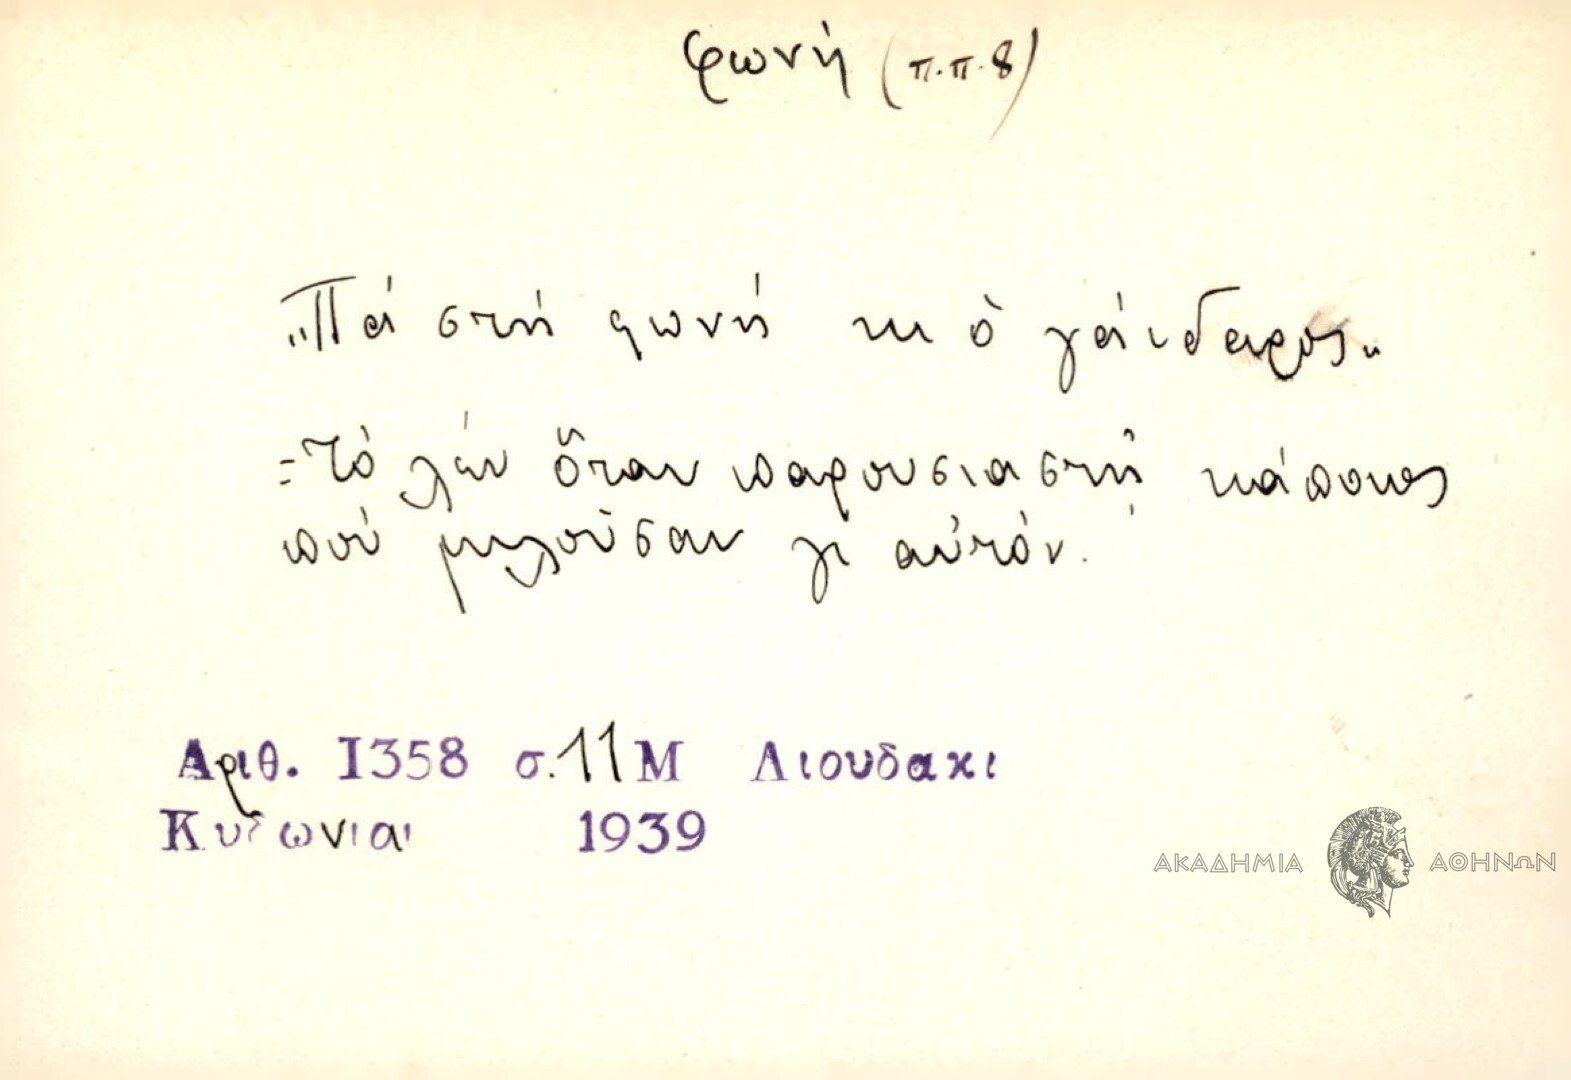 φωνή (π.π. 8)
"Πά στή φωνή κι ὁ γάιδαρος"
=Τό λέν ὅταν παρουσιαστῇ κάποιος
πού μιλοῦσαν γι αὐτόν.
Αριθ. 1358 σ. 11 Μ Λιουδακι
Κυδωνιαι 1939
ΑΚΑΔΗΜΙΑ ΑΘΗΝΩΝ